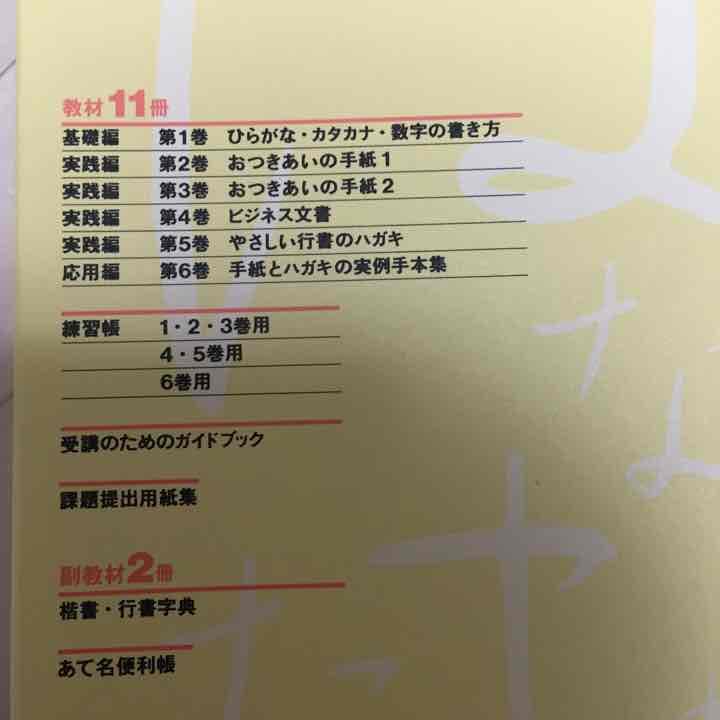 教材11冊
基礎編 第1巻 ひらがな・カタカナ・数字の書き方
実践編 第2巻 おつきあいの手紙1
実践編 第3巻 おつきあいの手紙2
実践編 第4巻 ビジネス文書
実践編 第5巻 やさしい行書のハガキ
応用編 第6巻 手紙とハガキの実例手本集
練習帳 1・2・3巻用
4・5巻用
6巻用
受講のためのガイドブック
課題提出用紙集
副教材2冊
楷書・行書字典
あて名便利帳